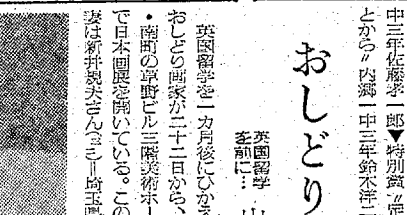 中三年佐藤孝一郎▼特別賞〃
とから〃内郷一中三年鈴木洋二
おしどり
英国留学
を前に…
英国留学を一カ月後にひかえ
おしどり画家が二十二日から、
・南町の草野ビル三階美術ホー
で日本画展を開いている。この
妻は新井規夫さん